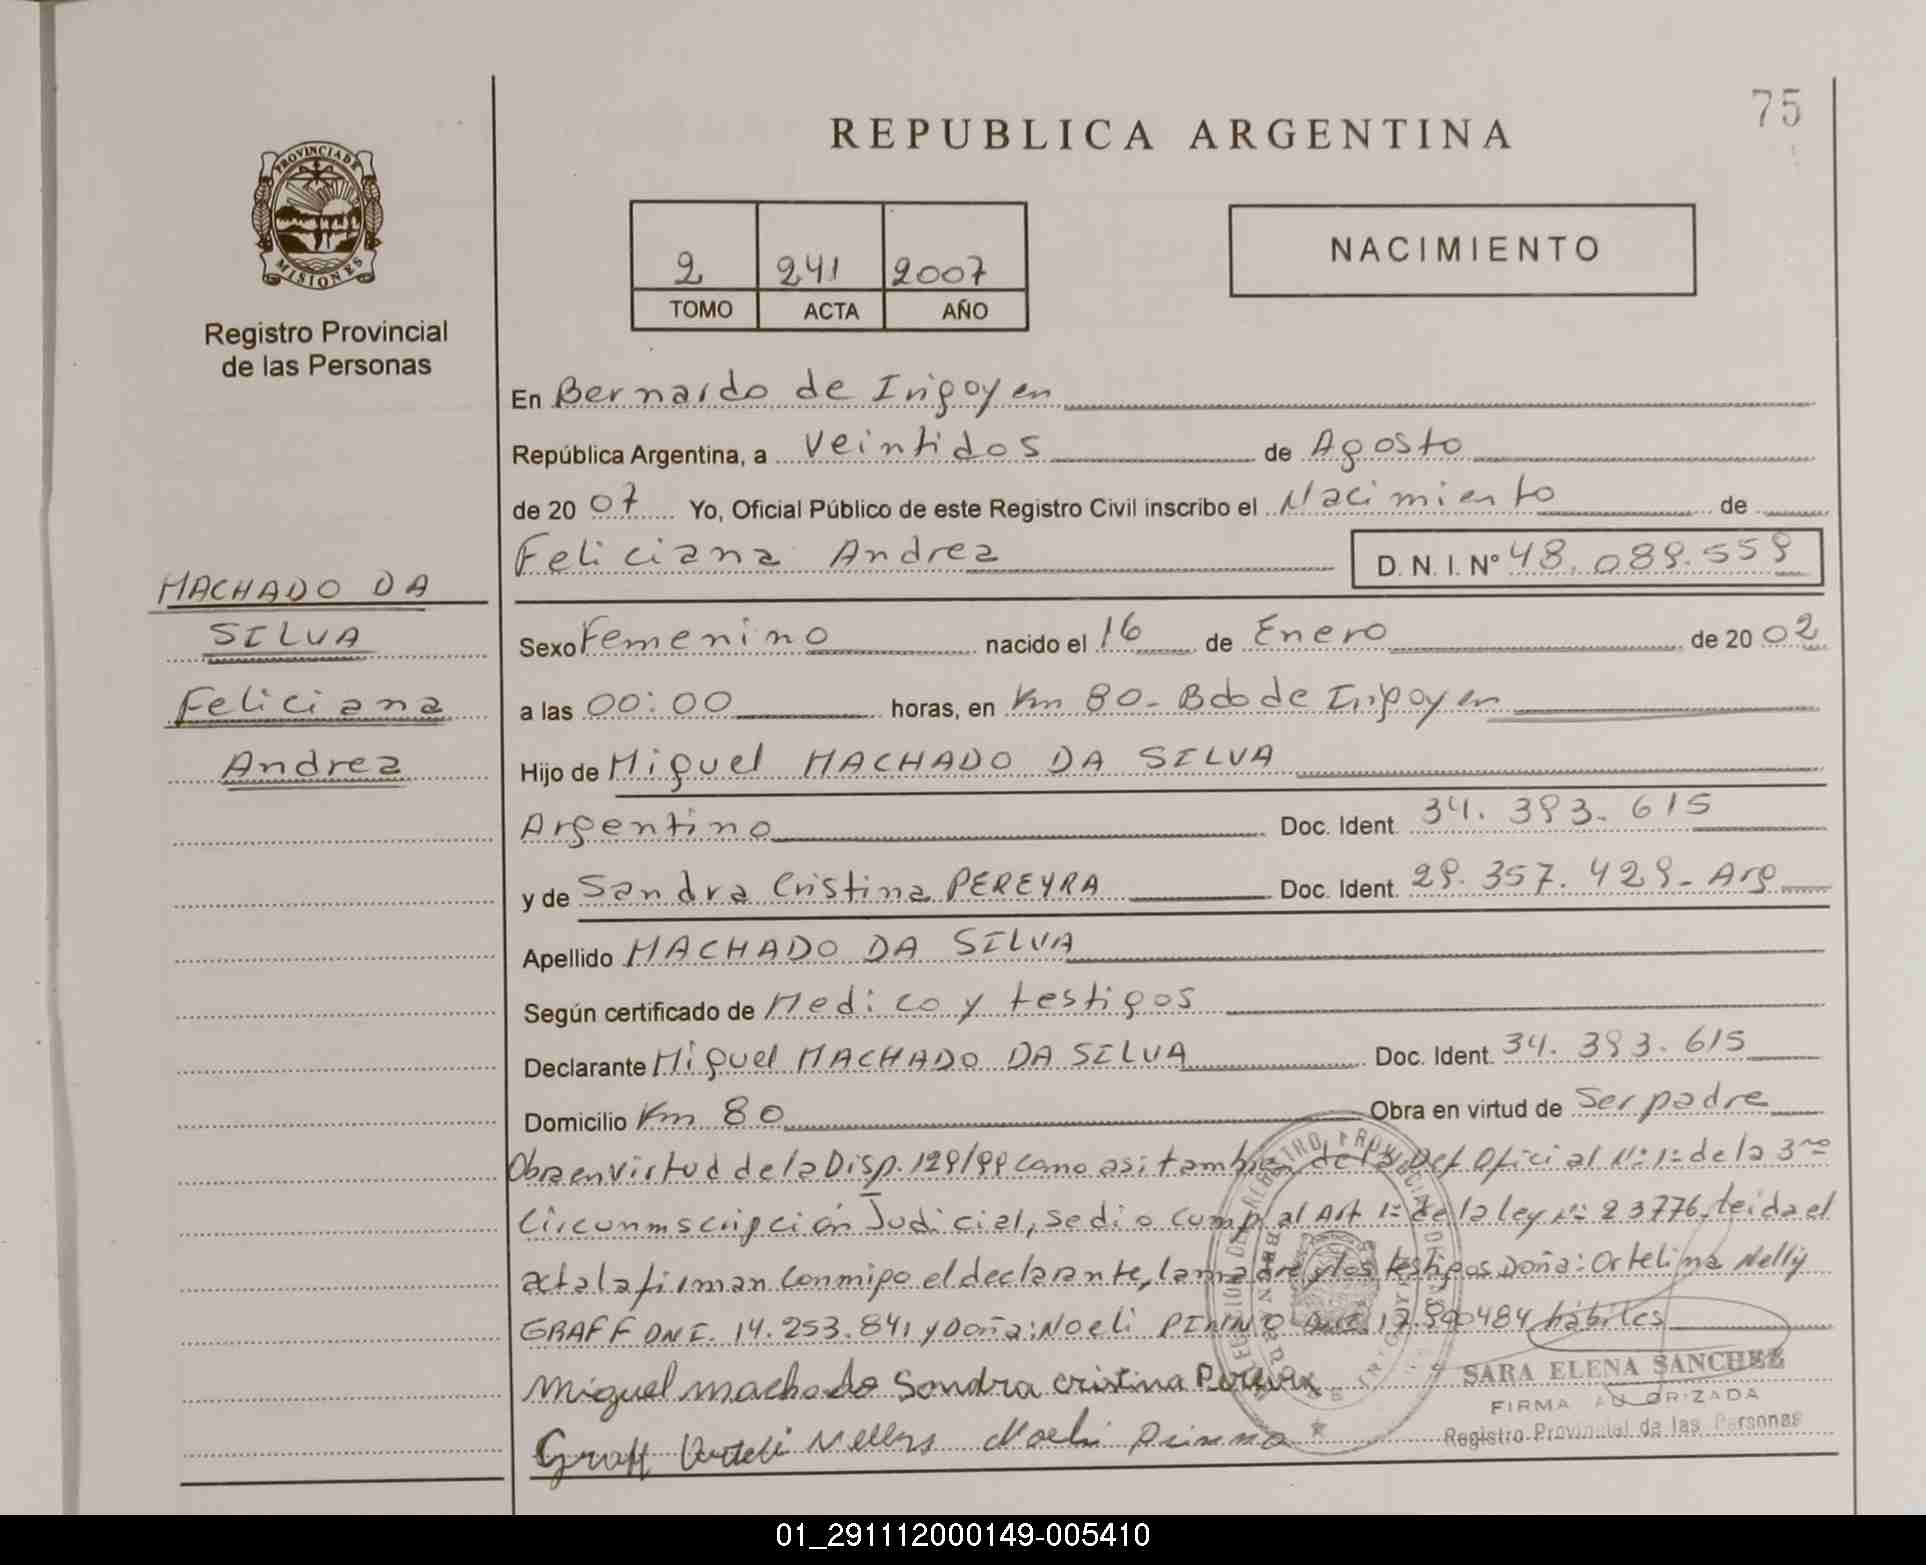 75
REPUBLICA ARGENTINA
PROVINCIA DE
MISIONES
Registro Provincial
de las Personas
2 241 2007
TOMO ACTA AÑO
NACIMIENTO
En Bernardo de Irigoyen
República Argentina, a Veintidos de Agosto
de 20 07 Yo, Oficial Público de este Registro Civil inscribo el Nacimiento de
Feliciana Andrea D. N. I. Nº 48.089.559
MACHADO DA
SILVA
Feliciana
Andrea
Sexo Femenino nacido el 16 de Enero de 20 02
a las 00:00 horas, en Km 80 - Bdo de Irigoyen
Hijo de Miguel MACHADO DA SILVA
Argentino Doc. Ident. 34.393.615
y de Sandra Cristina PEREYRA Doc. Ident. 29.357.429 - Arg
Apellido MACHADO DA SILVA
Según certificado de Medico y testigos
Declarante Miguel MACHADO DA SILVA Doc. Ident. 34.393.615
Domicilio Km 80 Obra en virtud de Ser padre
Obra en virtud de la Disp. 129/99 como asi tambien de la Def Oficial Nº 1 de la 3ra
Circunmscripción Judicial, se dio cump al Art 1º de la ley Nº 23776, leida el
acta la firman conmigo el declarante, la madre y los testigos Doña: Ortelina Nelly
GRAFF DNI. 14.253.841 y Doña: Noeli PINNO DNI. 17.590484 hábiles
Miguel machado Sandra cristina Pereira
Graff Nelly Noeli Pinno
SARA ELENA SANCHEZ
FIRMA AUTORIZADA
Registro Provincial de las Personas
01_291112000149-005410